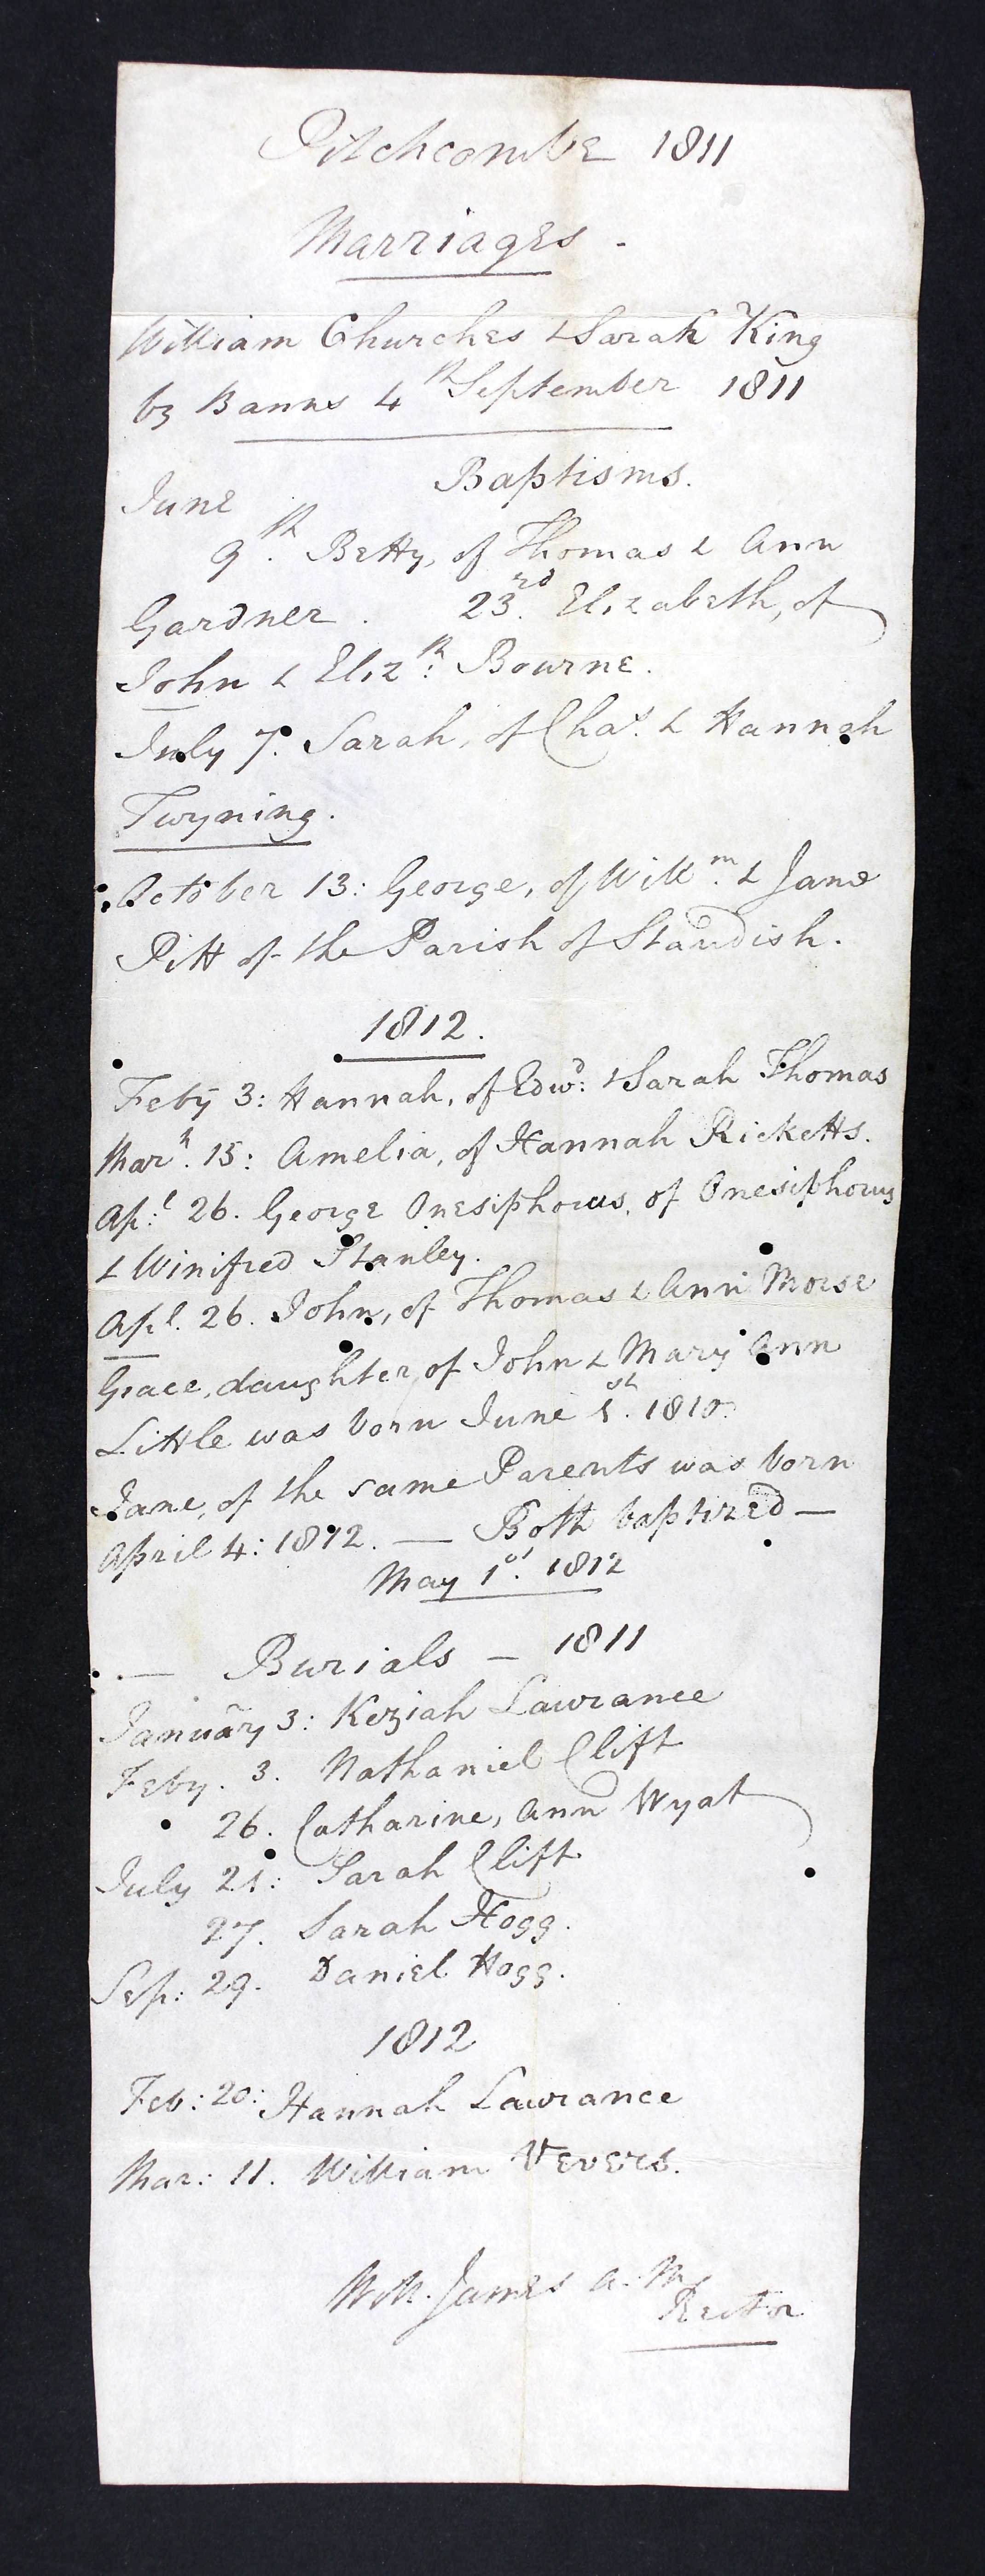 Pitchcombe 1811
Marriages -
William Churches & Sarah King
by Banns 4th September 1811
Baptisms.
June
9th. Betty, of Thomas & Ann
Gardner. 23rd. Elizabeth, of
John & Elizth: Bourne.
July 7. Sarah, of Chas. & Hannah
Twyning.
October 13: George, of Willm. & Jane
Pitt of the Parish of Standish.
1812.
Feby 3: Hannah, of Edwd: & Sarah Thomas
Marh. 15: Amelia, of Hannah Ricketts.
Ap:l 26. George Onesiphorus, of Onesiphorus
& Winifred Stanley.
Apl. 26. John, of Thomas & Ann Morse
Grace, daughter, of John & Mary Ann
Little was born June 1st. 1810.
Jane, of the same Parents was born
April 4: 1812. — Both baptized —
May 1st. 1812
— Burials — 1811
January 3: Keziah Lawrance
Feby. 3. Nathaniel Clift
26. Catharine, Ann Wyat
July 21: Sarah Clift
27. Sarah Hogg.
Sep: 29. Daniel Hogg.
1812
Feb: 20: Hannah Lawrance
Mar: 11. William Vevers.
Wm. James A. M.
Rector